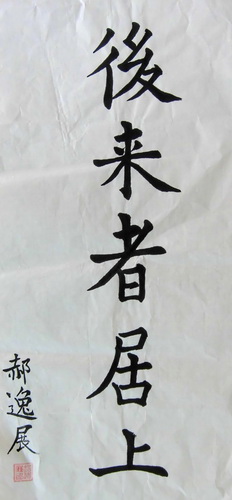 後来者居上
郝逸展